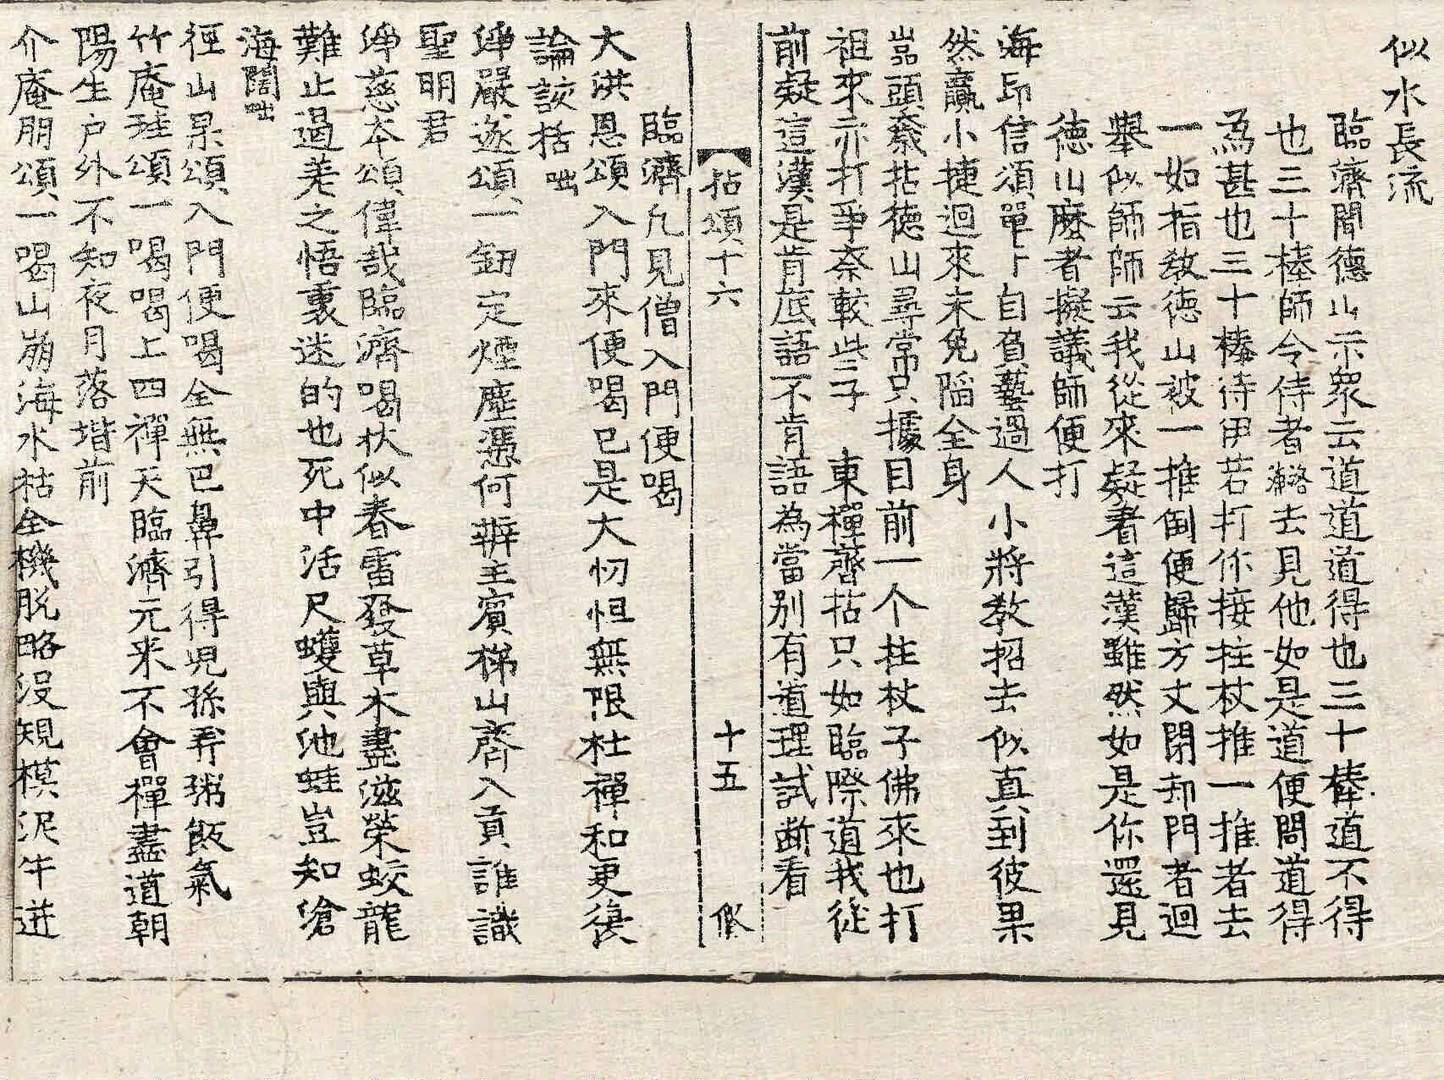 似水長流
臨濟聞德山示衆云道道道得也三十棒道不得
也三十棒師令侍者潞去見他如是道便問道得
爲甚也三十棒待伊若打你接柱杖推一推者去
一如指敎德山被一推倒便歸方丈閉却門者迴
舉似師師云我從來疑着這漢雖然如是你還見
德山麽者擬議師便打
海印信頌單卜自負藝過人小將敎招去似眞到彼果
然贏小捷迴來未免陷全身
嵓頭奯拈德山尋常只據目前一个柱杖子佛來也打
祖來亦打爭奈較些子 東禪齊拈只如臨際道我從
前疑這漢是肯底語不肯語為當別有道理試断看
拈頌十六 十五
臨濟凡見僧入門便喝
大洪恩頌入門來便喝已是大忉怛無限杜禪和更復
論該括咄
淨嚴遂頌一釰定煙塵憑何辨主賓梯山齊入貢誰識
聖明君
淨慈本頌偉哉臨濟喝狀似春雷發草木盡滋榮蛟龍
難止遏羌之悟裏迷的也死中活尺蠖與池蛙豈知滄
海闊咄
徑山杲頌入門便喝全無巴鼻引得児孫弄粥飯氣
竹庵珪頌一喝喝上四禪天臨濟元来不會禪盡道朝
陽生户外不知夜月落堦前
介庵朋頌一喝山崩海水枯全機脱略没䂓模泥牛迸